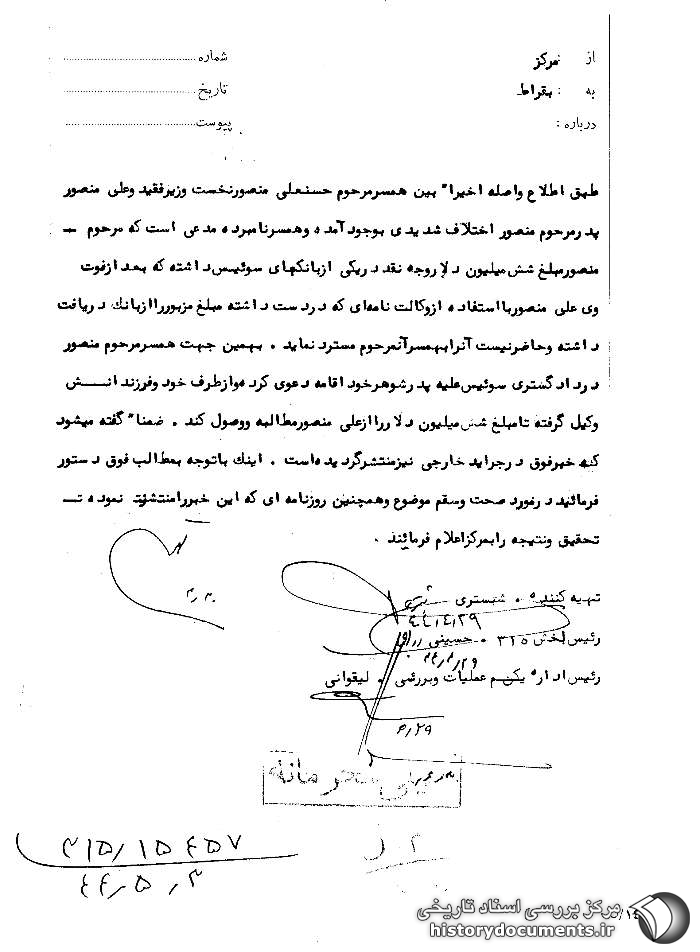 از : مرکز
شماره
به : بقراط
تاریخ
درباره :
پیوست
طبق اطلاع واصله اخیرا" بین همسرمرحوم حسنعلی منصورنخست وزیرفقید وعلی منصور
پدرمرحوم منصور اختلاف شدیدی بوجود آمده وهمسرنامبرده مدعی است که مرحوم
منصورمبلغ شش میلیون دلاروجه نقد دریکی ازبانکهای سوئیس داشته که بعد ازفوت
وی علی منصوربااستفاده ازوکالت نامه‌ای که دردست داشته مبلغ مزبورراازبانك دریافت
داشته وحاضرنیست آنرابهمسرآنمرحوم مسترد نماید . بهمین جهت همسرمرحوم منصور
دردادگستری سوئیس علیه پدرشوهرخود اقامه دعوی کرده وازطرف خود وفرزندانش
وکیل گرفته تامبلغ شش میلیون دلارراازعلی منصورمطالبه ووصول کند . ضمنا" گفته میشود
که خبرفوق درجراید خارجی نیزمنتشرگردیده است . اینك باتوجه بمطالب فوق دستور
فرمائید درمورد صحت وسقم موضوع وهمچنین روزنامه ای که این خبررامنتشر نموده
تحقیق ونتیجه رابمرکزاعلام فرمائند .
تهیه کننده . شبستری
رئیس بخش ۳۱۵ . حسینی
۴۴/۴/۲۹
رئیس اداره یکم عملیات وبررسی . لیقوانی
۴/۲۹
خیلی محرمانه
۳۱۵/۱۵۴۵۷
۴۴/۵/۳
مرکز بررسی اسناد تاریخی
historydocuments.ir